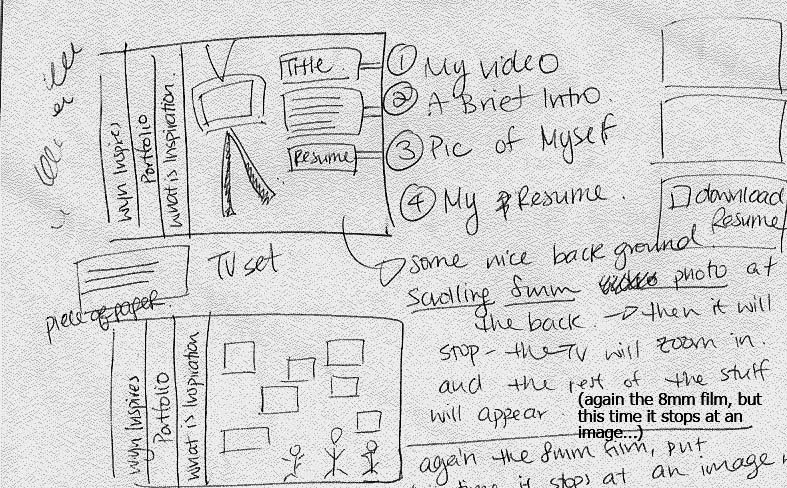 Wyn Inspires
Portfolio
What is Inspiration.
Title.
Resume
① My video
② A Brief Intro.
③ Pic of Myself
④ My Resume.
download
Resume
TV set
piece of paper.
some nice back ground
scrolling 8mm photo at
the back. then it will
stop - the TV will zoom in.
and the rest of the stuff
will appear.
(again the 8mm film, but
this time it stops at an
image...)
again the 8mm film, but
time it stops at an image
Wyn Inspires
Portfolio
What is Inspiration